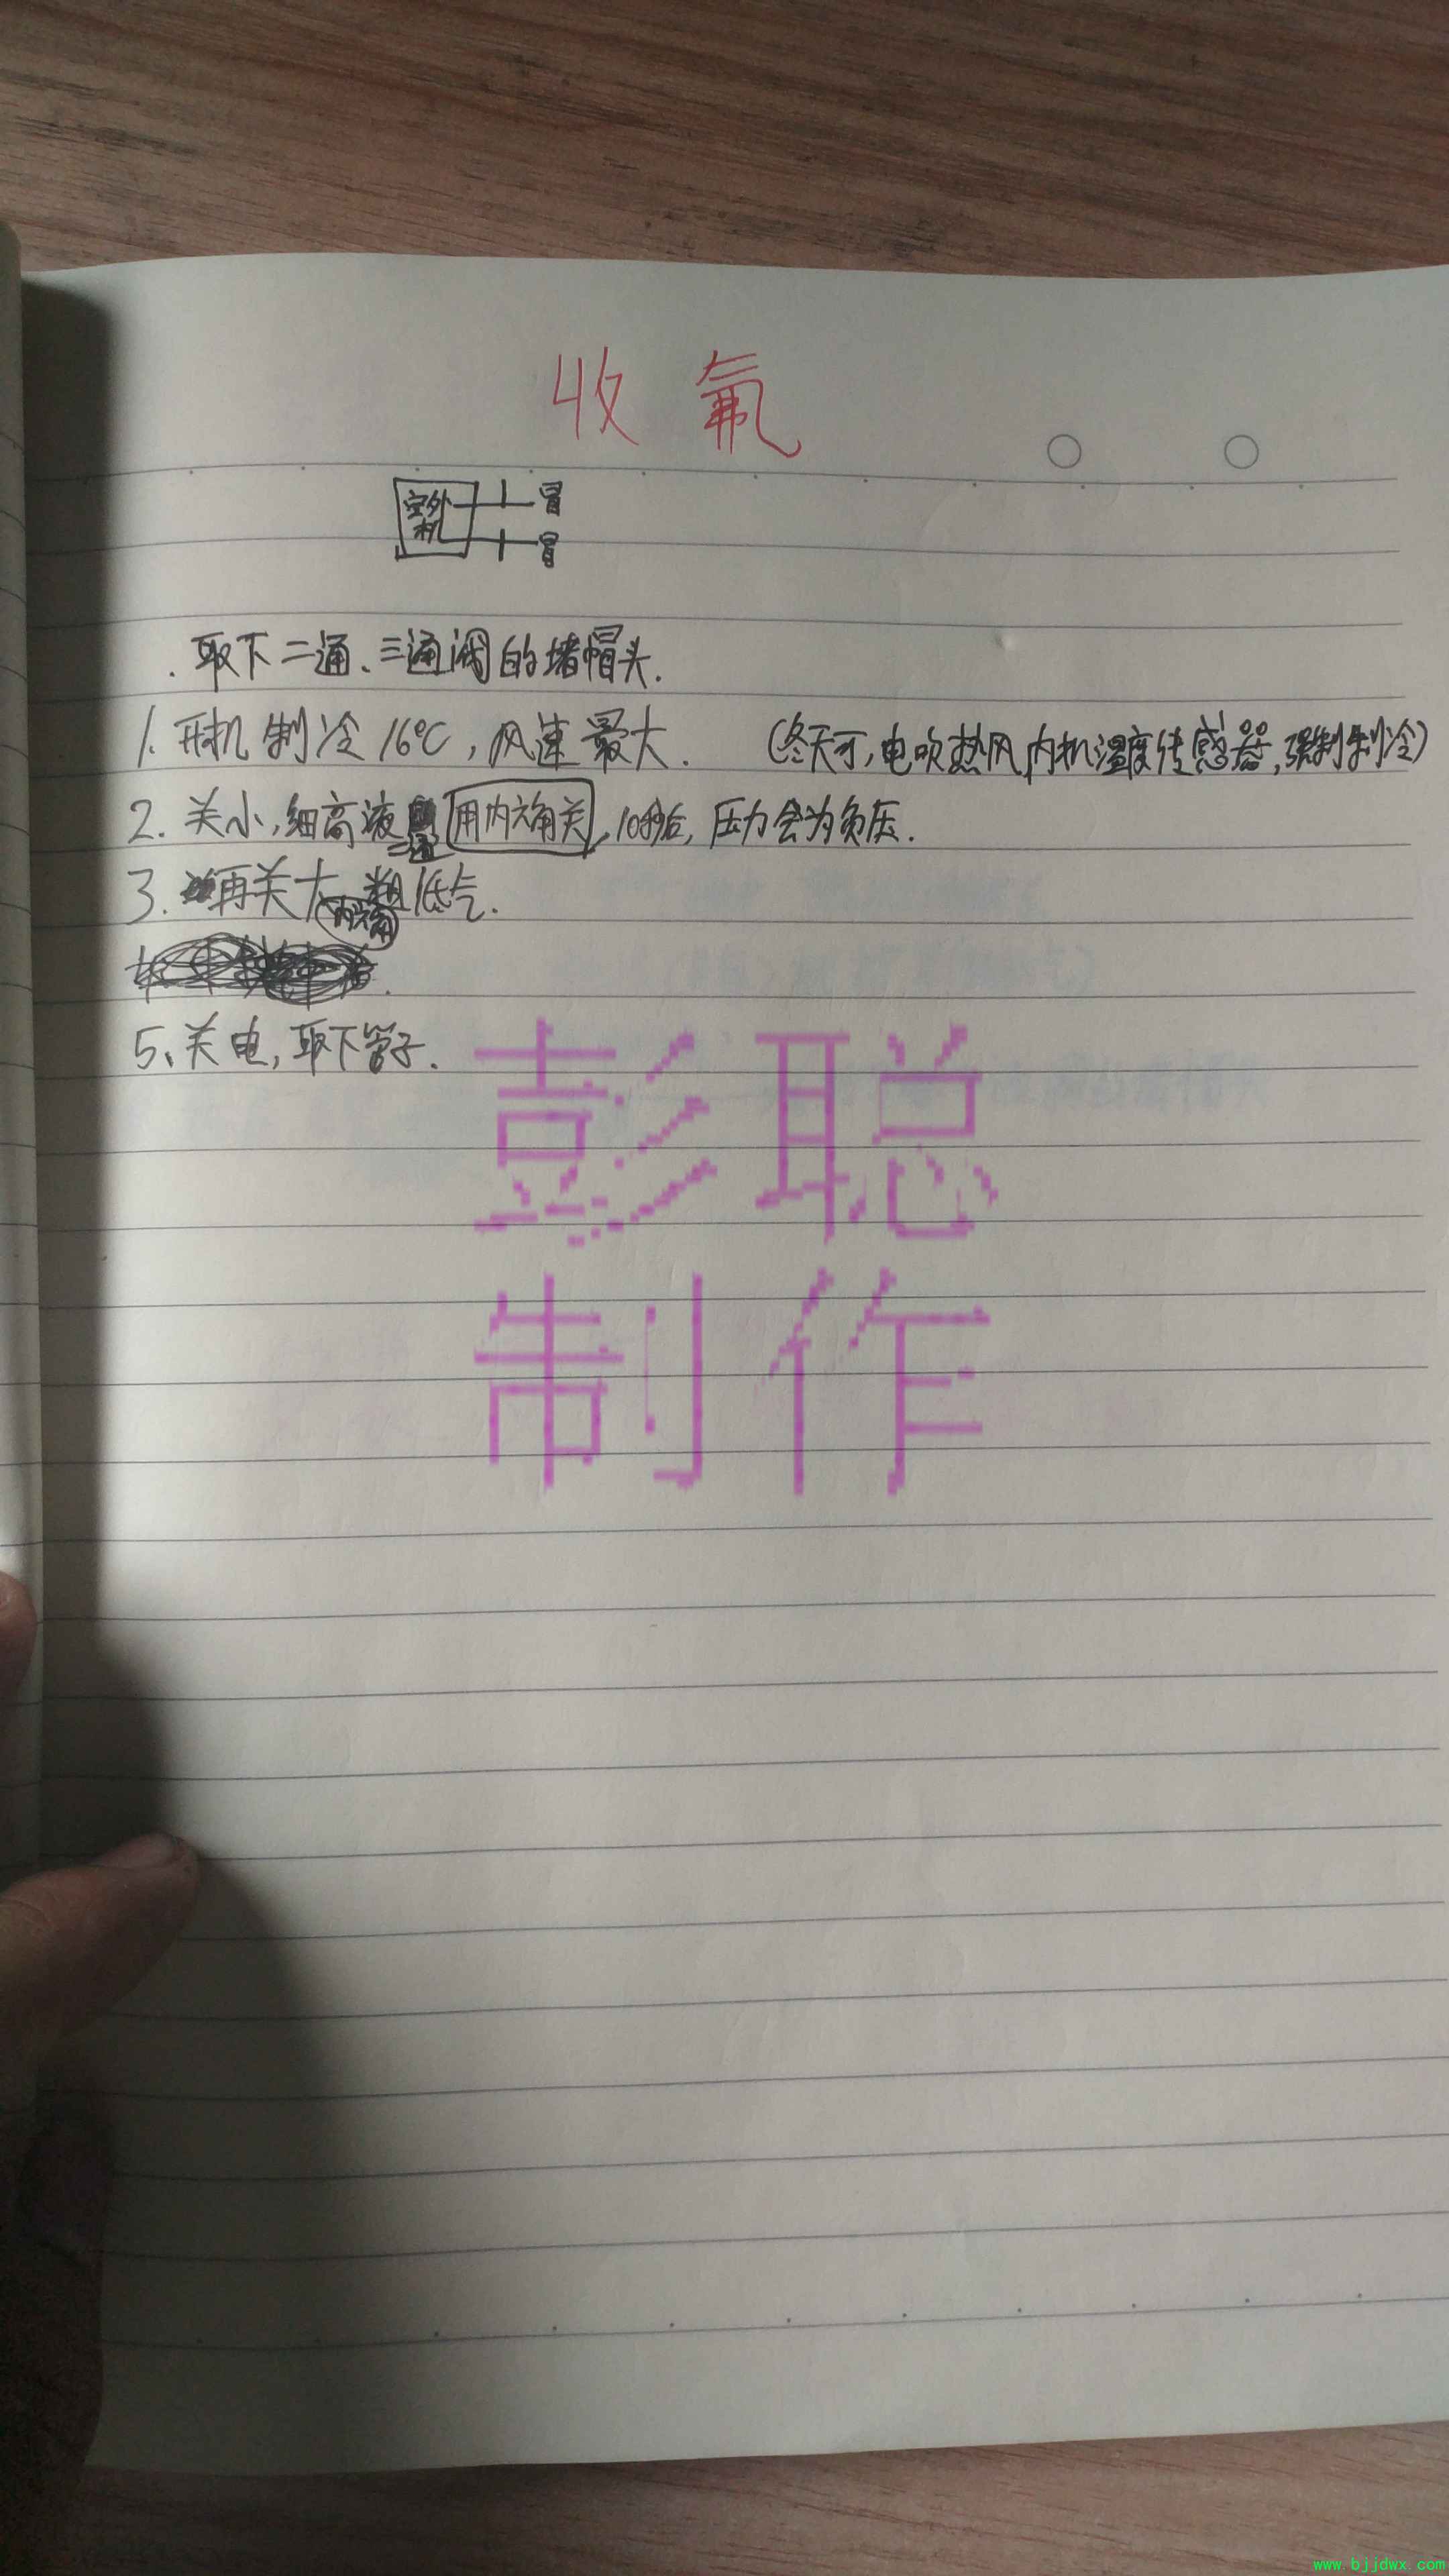 收氟
室外机 冒
冒
. 取下二通、三通阀的堵帽头.
1. 开机制冷16℃, 风速最大. (冬天可, 电吹热风, 内机温度传感器, 强制制冷)
2. 关小, 细高液 二通 用内六角关, 10秒后, 压力会为负压.
3. 再关大 粗低气.
内六角
5、关电, 取下管子.
彭聪
制作
www.bjjdwx.com